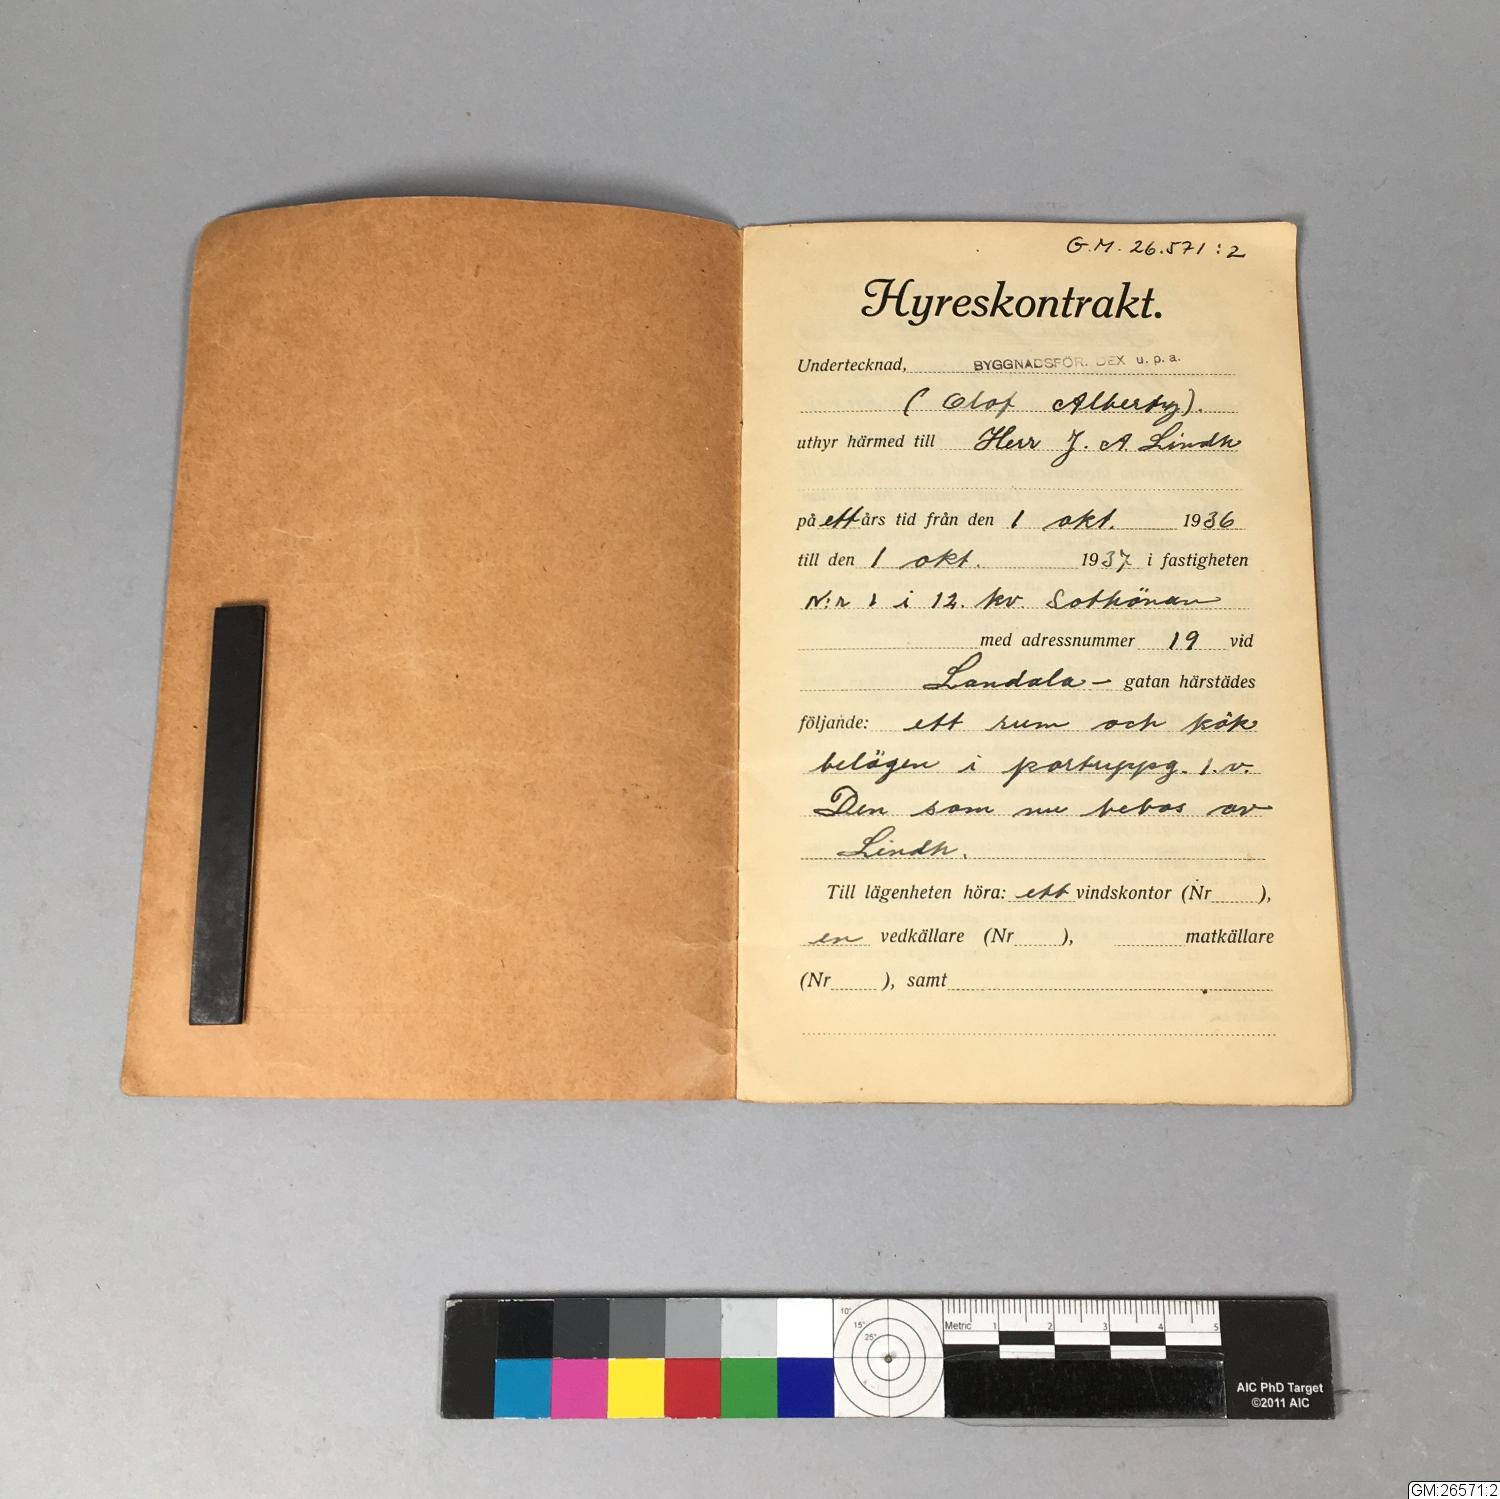 G.M. 26.571:2
Hyreskontrakt.
Undertecknad, BYGGNADSFÖR. DEX u. p. a.
(Olof Alberty).
uthyr härmed till Herr J. A. Lindh
på ett års tid från den 1 okt. 1936
till den 1 okt. 1937 i fastigheten
N:r 1 i 12. kv. Sothönan
med adressnummer 19 vid
Landala- gatan härstädes
följande: ett rum och kök
belägen i portuppg. 1.v.
Den som nu bebos av
Lindh.
Till lägenheten höra: ett vindskontor (Nr ),
en vedkällare (Nr ), matkällare
(Nr ), samt
10°
15°
25°
Metric 1 2 3 4 5
AIC PhD Target
©2011 AIC
GM:26571:2